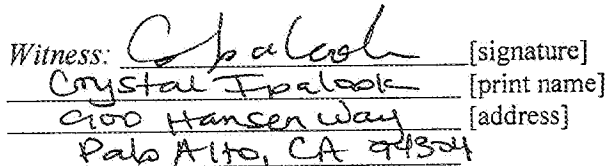 Witness: CIpalook [signature]
Crystal Ipalook [print name]
900 Hansen Way [address]
Palo Alto, CA 94304